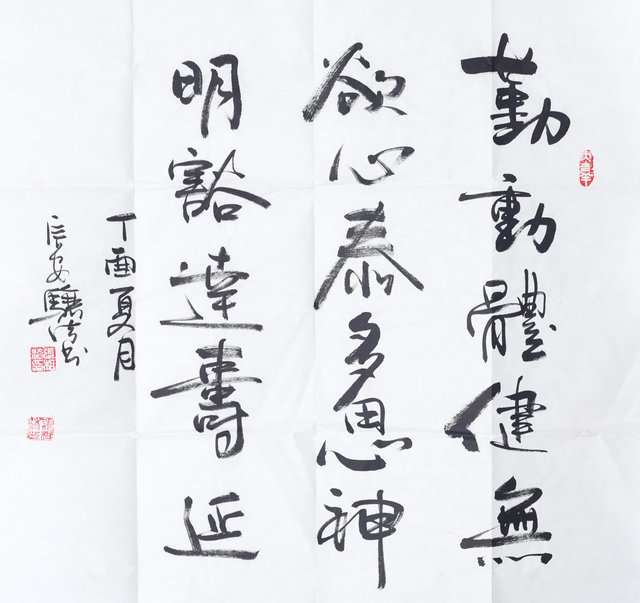 勤動體健無
欲心泰多思神
明豁達壽延
丁酉夏月
長安驥涛书